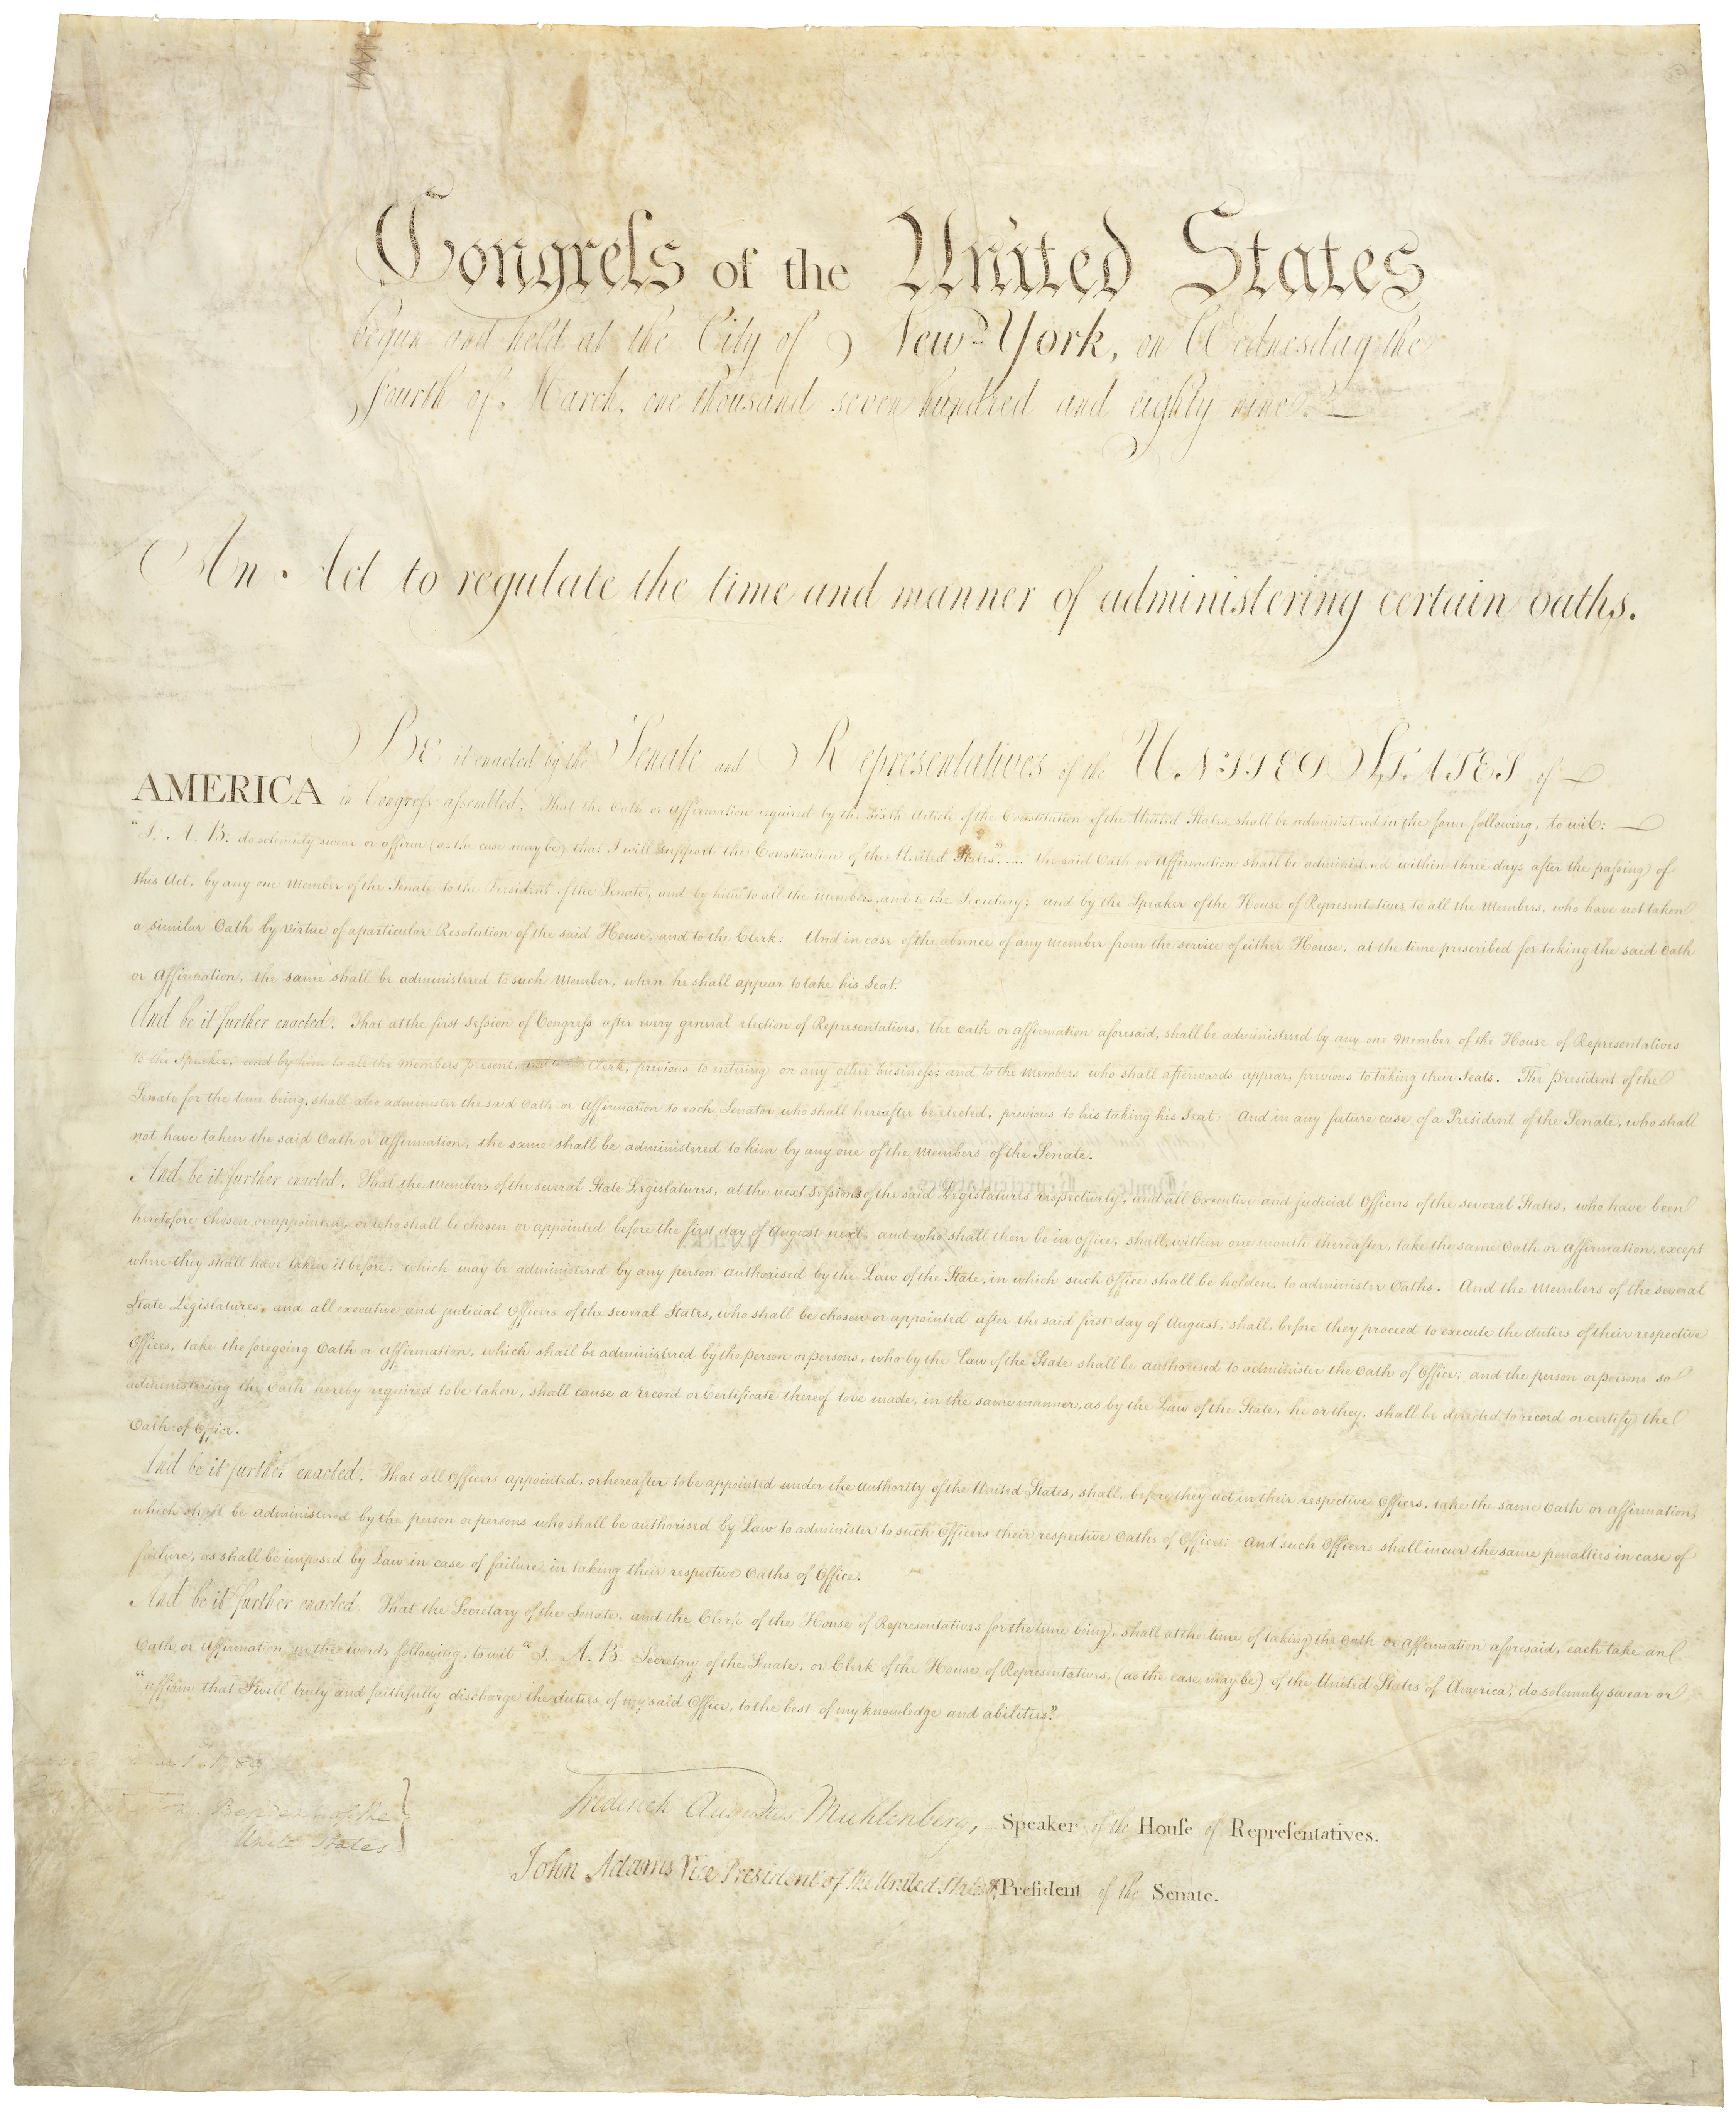 Congreſs of the United States
begun and held at the City of New-York, on Wednesday the
fourth of March, one thousand seven hundred and eighty nine.
An Act to regulate the time and manner of administering certain oaths.
BE it enacted by the Senate and Representatives of the UNITED STATES of
AMERICA in Congreſs aſsembled, That the Oath or Affirmation required by the sixth Article of the Constitution of the United States, shall be administered in the form following, to wit:
"I. A. B. do solemnly swear or affirm (as the case may be) that I will support the Constitution of the United States." The said Oath or Affirmation shall be administered within three days after the paſsing of
this Act, by any one Member of the Senate to the President of the Senate, and by him to all the Members, and to the Secretary; and by the Speaker of the House of Representatives, to all the Members, who have not taken
a similar Oath by virtue of a particular Resolution of the said House, and to the Clerk: And in case of the absence of any Member from the service of either House, at the time prescribed for taking the said Oath
or Affirmation, the same shall be administered to such Member, when he shall appear to take his Seat.
And be it further enacted, That at the first Seſsion of Congreſs after every general election of Representatives, the Oath or Affirmation aforesaid, shall be administered by any one Member of the House of Representatives
to the Speaker, and by him to all the members present, and to the Clerk, previous to entering on any other busineſs; and to the Members who shall afterwards appear, previous to taking their Seats. The President of the
Senate for the time being, shall also administer the said Oath or Affirmation to each Senator who shall hereafter be elected, previous to his taking his Seat. And in any future case of a President of the Senate, who shall
not have taken the said Oath or Affirmation, the same shall be administered to him by any one of the Members of the Senate.
And be it further enacted, That the Members of the several State Legislatures, at the next Seſsions of the said Legislatures respectively, and all Executive and judicial Officers of the several States, who have been
heretofore chosen or appointed, or who shall be chosen or appointed before the first day of August next, and who shall then be in office, shall, within one month thereafter, take the same Oath or Affirmation, except
where they shall have taken it before; which may be administered by any person authorised by the Law of the State, in which such Office shall be holden, to administer Oaths. And the Members of the several
State Legislatures, and all executive and judicial Officers of the several States, who shall be chosen or appointed after the said first day of August, shall, before they proceed to execute the duties of their respective
Offices, take the foregoing Oath or Affirmation, which shall be administered by the person or persons, who by the Law of the State shall be authorised to administer the Oath of Office; and the person or persons so
administering the Oath hereby required to be taken, shall cause a record or Certificate thereof to be made, in the same manner, as by the Law of the State, he or they, shall be directed to record or certify the
Oath of Office.
And be it further enacted, That all Officers appointed, or hereafter to be appointed under the authority of the United States, shall, before they act in their respective Offices, take the same Oath or Affirmation,
which shall be administered by the person or persons who shall be authorised by Law to administer to such Officers their respective Oaths of Office; And such Officers shall incur the same penalties in case of
failure, as shall be imposed by Law in case of failure in taking their respective Oaths of Office.
And be it further enacted, That the Secretary of the Senate, and the Clerk of the House of Representatives for the time being, shall at the time of taking the Oath or Affirmation aforesaid, each take an
Oath or Affirmation in the words following, to wit "I. A. B. Secretary of the Senate, or Clerk of the House of Representatives, (as the case may be) of the United States of America, do solemnly swear or
"affirm that I will truly and faithfully discharge the duties of my said Office, to the best of my knowledge and abilities."
Frederick Augustus Muhlenberg, Speaker of the Houſe of Repreſentatives.
United States
John Adams Vice President of the United States, & Preſident of the Senate.